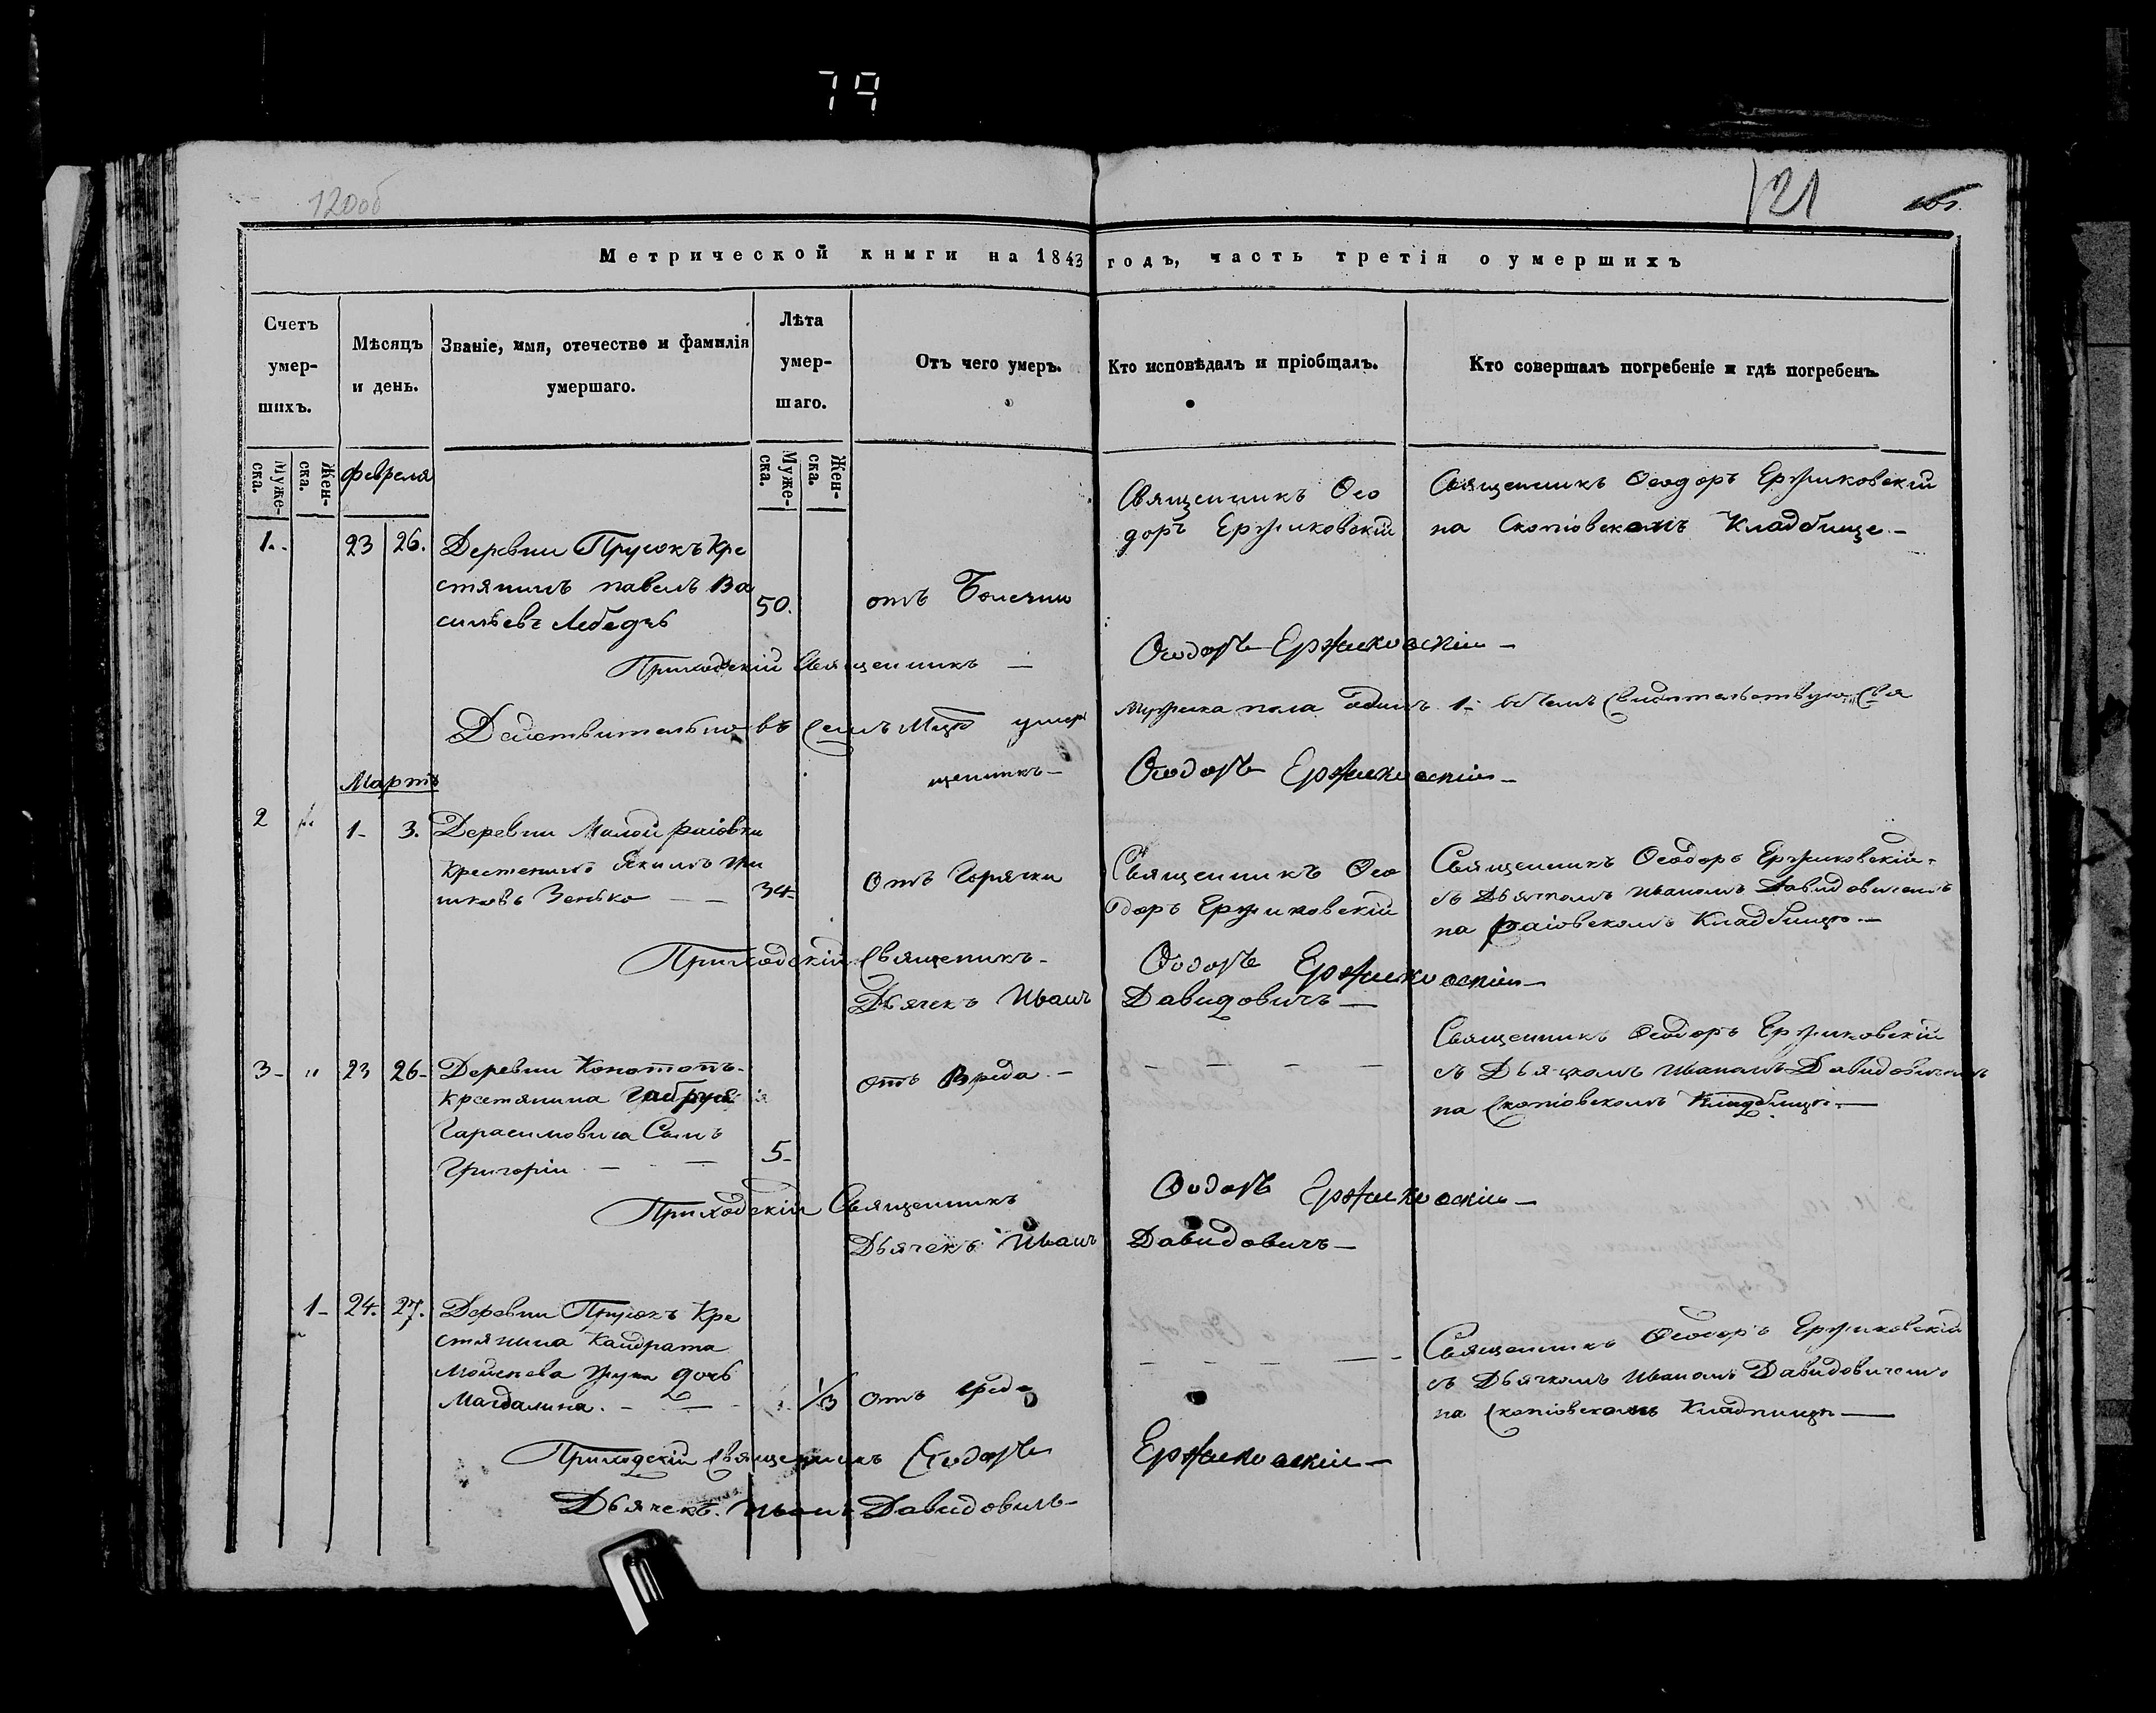 79
120об
121
Метрической книги на 1843 годъ, часть третія о умершихъ
Счетъ умер-шихъ.
Мѣсяцъ и день.
Званіе, имя, отечество и фамилія умершаго.
Лѣта умер-шаго.
Отъ чего умеръ.
Кто исповѣдалъ и пріобщалъ.
Кто совершалъ погребеніе и гдѣ погребенъ.
Муже-ска.
Жен-ска.
Муже-ска.
Жен-ска.
февраля
1. 23 26.
Деревни Прусокъ Кре
стянинъ павелъ Ва
сильевъ Лебедь
50.
отъ
Священникъ Ѳео
доръ Ержиковскій
Священникъ Ѳеодоръ Ержиковскій
на Скопіовскомъ Кладбище –
Приходскій Священникъ – Ѳеодоръ Ержиковскій –
Действительно въ семъ умер
мужеска пола одинъ 1- въ чемъ свидетельствую Свя
щенникъ – Ѳеодоръ Ержиковскій –
Мартъ
2 1- 3.
Деревни Малой раіовки
Крестенинъ Якимъ
Зенько – –
34-
Отъ Горячки
Священникъ Ѳео
доръ Ержиковскій
Священникъ Ѳеодоръ Ержиковскій
съ Дьячкомъ Иваномъ Давидовичемъ
на раіовскомъ Кладбищѣ –
Приходскій Священикъ – Ѳеодоръ Ержиковскій –
Дьячекъ Иванъ Давидовичъ –
3- " 23 26-
Деревни Конотопъ-
Крестянина
Гарасимовича Сынъ
Григорій – –
5-
отъ Вреда –
– – – –
Священникъ Ѳеодоръ Ержиковскій
съ Дьячкомъ Иваномъ Давидовичемъ
на Скопіовскомъ Кладбищѣ –
Приходскій Священникъ Ѳеодоръ Ержиковскій –
Дьячекъ Иванъ Давидовичъ –
1- 24. 27.
Деревни Прусокъ Кре
стянина Кандрата
дочь
Магдалина. – –
1/3
отъ
– – – – –
Священникъ Ѳеодоръ Ержиковскій
съ Дьячкомъ Иваномъ Давидовичемъ
на Скопіовскомъ
Приходскій Священникъ Ѳеодоръ Ержиковскій –
Дьячекъ. Иванъ Давидовичъ –